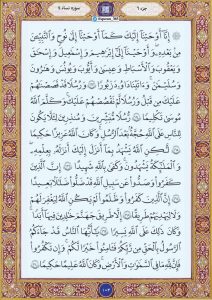 جزء ۶
سوره نساء ۴
۞ إِنَّآ أَوْحَيْنَآ إِلَيْكَ كَمَآ أَوْحَيْنَآ إِلَىٰ نُوحٍ وَٱلنَّبِيِّـۧنَ
مِنۢ بَعْدِهِۦ وَأَوْحَيْنَآ إِلَىٰٓ إِبْرَٰهِيمَ وَإِسْمَٰعِيلَ وَإِسْحَٰقَ
وَيَعْقُوبَ وَٱلْأَسْبَاطِ وَعِيسَىٰ وَأَيُّوبَ وَيُونُسَ وَهَٰرُونَ
وَسُلَيْمَٰنَ وَءَاتَيْنَا دَاوُۥدَ زَبُورًا ١٦٣ وَرُسُلًا قَدْ قَصَصْنَٰهُمْ
عَلَيْكَ مِن قَبْلُ وَرُسُلًا لَّمْ نَقْصُصْهُمْ عَلَيْكَ وَكَلَّمَ ٱللَّهُ
مُوسَىٰ تَكْلِيمًا ١٦٤ رُّسُلًا مُّبَشِّرِينَ وَمُنذِرِينَ لِئَلَّا يَكُونَ
لِلنَّاسِ عَلَى ٱللَّهِ حُجَّةٌۢ بَعْدَ ٱلرُّسُلِ وَكَانَ ٱللَّهُ عَزِيزًا حَكِيمًا
١٦٥ لَّٰكِنِ ٱللَّهُ يَشْهَدُ بِمَآ أَنزَلَ إِلَيْكَ أَنزَلَهُۥ بِعِلْمِهِۦ
وَٱلْمَلَٰٓئِكَةُ يَشْهَدُونَ وَكَفَىٰ بِٱللَّهِ شَهِيدًا ١٦٦ إِنَّ ٱلَّذِينَ
كَفَرُوا۟ وَصَدُّوا۟ عَن سَبِيلِ ٱللَّهِ قَدْ ضَلُّوا۟ ضَلَٰلًۢا بَعِيدًا
١٦٧ إِنَّ ٱلَّذِينَ كَفَرُوا۟ وَظَلَمُوا۟ لَمْ يَكُنِ ٱللَّهُ لِيَغْفِرَ لَهُمْ
وَلَا لِيَهْدِيَهُمْ طَرِيقًا ١٦٨ إِلَّا طَرِيقَ جَهَنَّمَ خَٰلِدِينَ فِيهَآ أَبَدًا
وَكَانَ ذَٰلِكَ عَلَى ٱللَّهِ يَسِيرًا ١٦٩ يَٰٓأَيُّهَا ٱلنَّاسُ قَدْ جَآءَكُمُ
ٱلرَّسُولُ بِٱلْحَقِّ مِن رَّبِّكُمْ فَـَٔامِنُوا۟ خَيْرًا لَّكُمْ وَإِن تَكْفُرُوا۟
فَإِنَّ لِلَّهِ مَا فِى ٱلسَّمَٰوَٰتِ وَٱلْأَرْضِ وَكَانَ ٱللَّهُ عَلِيمًا حَكِيمًا ١٧٠
١٠٤